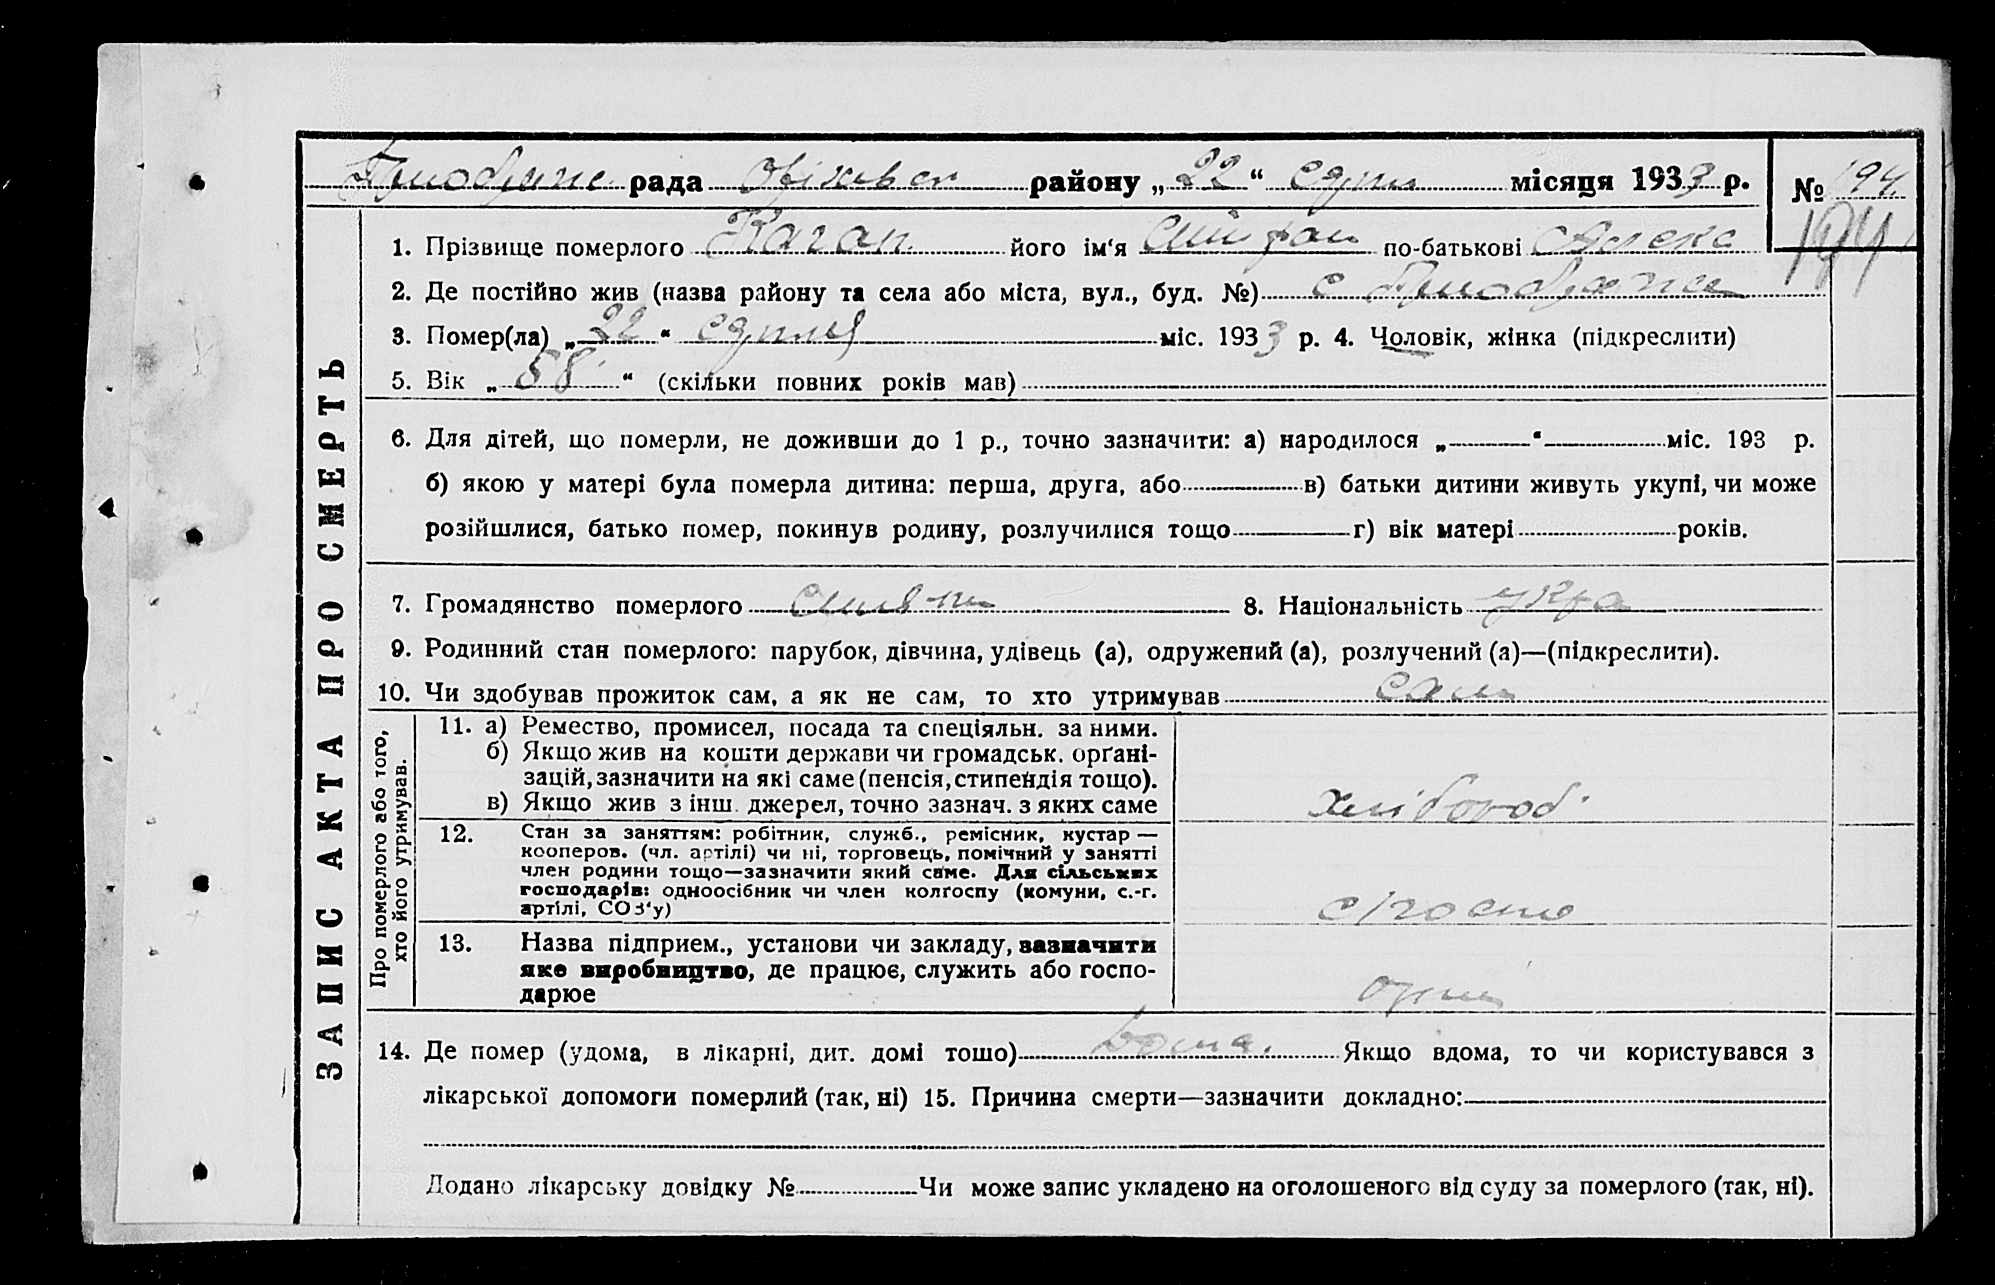 рада району „ 22 “ місяця 1933 р. № 194
194
1. Прізвище померлого Каган його ім'я по-батькові
2. Де постійно жив (назва району та села або міста, вул., буд. №) с
3. Помер(ла) „ 22 “ міс. 1933 р. 4. Чоловік, жінка (підкреслити)
5. Вік „ 58 “ (скільки повних років мав)
6. Для дітей, що померли, не доживши до 1 р., точно зазначити: а) народилося „ “ міс. 193 р.
б) якою у матері була померла дитина: перша, друга, або в) батьки дитини живуть укупі, чи може
розійшлися, батько помер, покинув родину, розлучилися тощо г) вік матері років.
7. Громадянство померлого 8. Національність укра
9. Родинний стан померлого: парубок, дівчина, удівець (а), одружений (а), розлучений (а)—(підкреслити).
10. Чи здобував прожиток сам, а як не сам, то хто утримував сам
ЗАПИС АКТА ПРО СМЕРТЬ
Про померлого або того,
хто його утримував.
11. а) Ремество, промисел, посада та спеціяльн. за ними.
б) Якщо жив на кошти держави чи громадськ. орґані-
зацій, зазначити на які саме (пенсія, стипендія тощо).
в) Якщо жив з інш. джерел, точно зазнач. з яких саме
хлібороб
12. Стан за заняттям: робітник, служб., ремісник, кустар —
кооперов. (чл. артілі) чи ні, торговець, помічний у занятті
член родини тощо—зазначити який саме. Для сільських
господарів: одноосібник чи член колгоспу (комуни, с.-г.
артілі, СОЗ'у)
13. Назва підприєм., установи чи закладу, зазначити
яке виробництво, де працює, служить або госпо-
дарює
14. Де помер (удома, в лікарні, дит. домі тощо) Дома. Якщо вдома, то чи користувався з
лікарської допомоги померлий (так, ні) 15. Причина смерти—зазначити докладно:
Додано лікарську довідку № Чи може запис укладено на оголошеного від суду за померлого (так, ні).